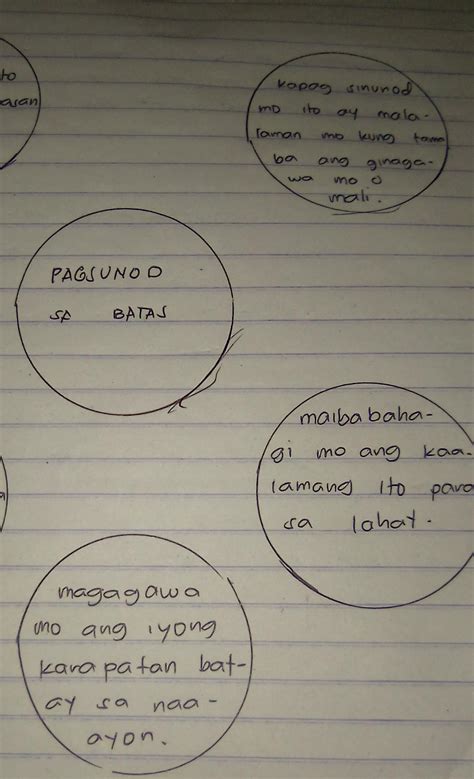 to
asan
kapag sinunod
mo ito ay mala-
laman mo kung tama
ba ang ginaga-
wa mo o
mali.
PAGSUNOD
SA BATAS
maibabaha-
gi mo ang kaa-
lamang ito para
sa lahat.
magagawa
mo ang iyong
karapatan bat-
ay sa naa-
ayon.